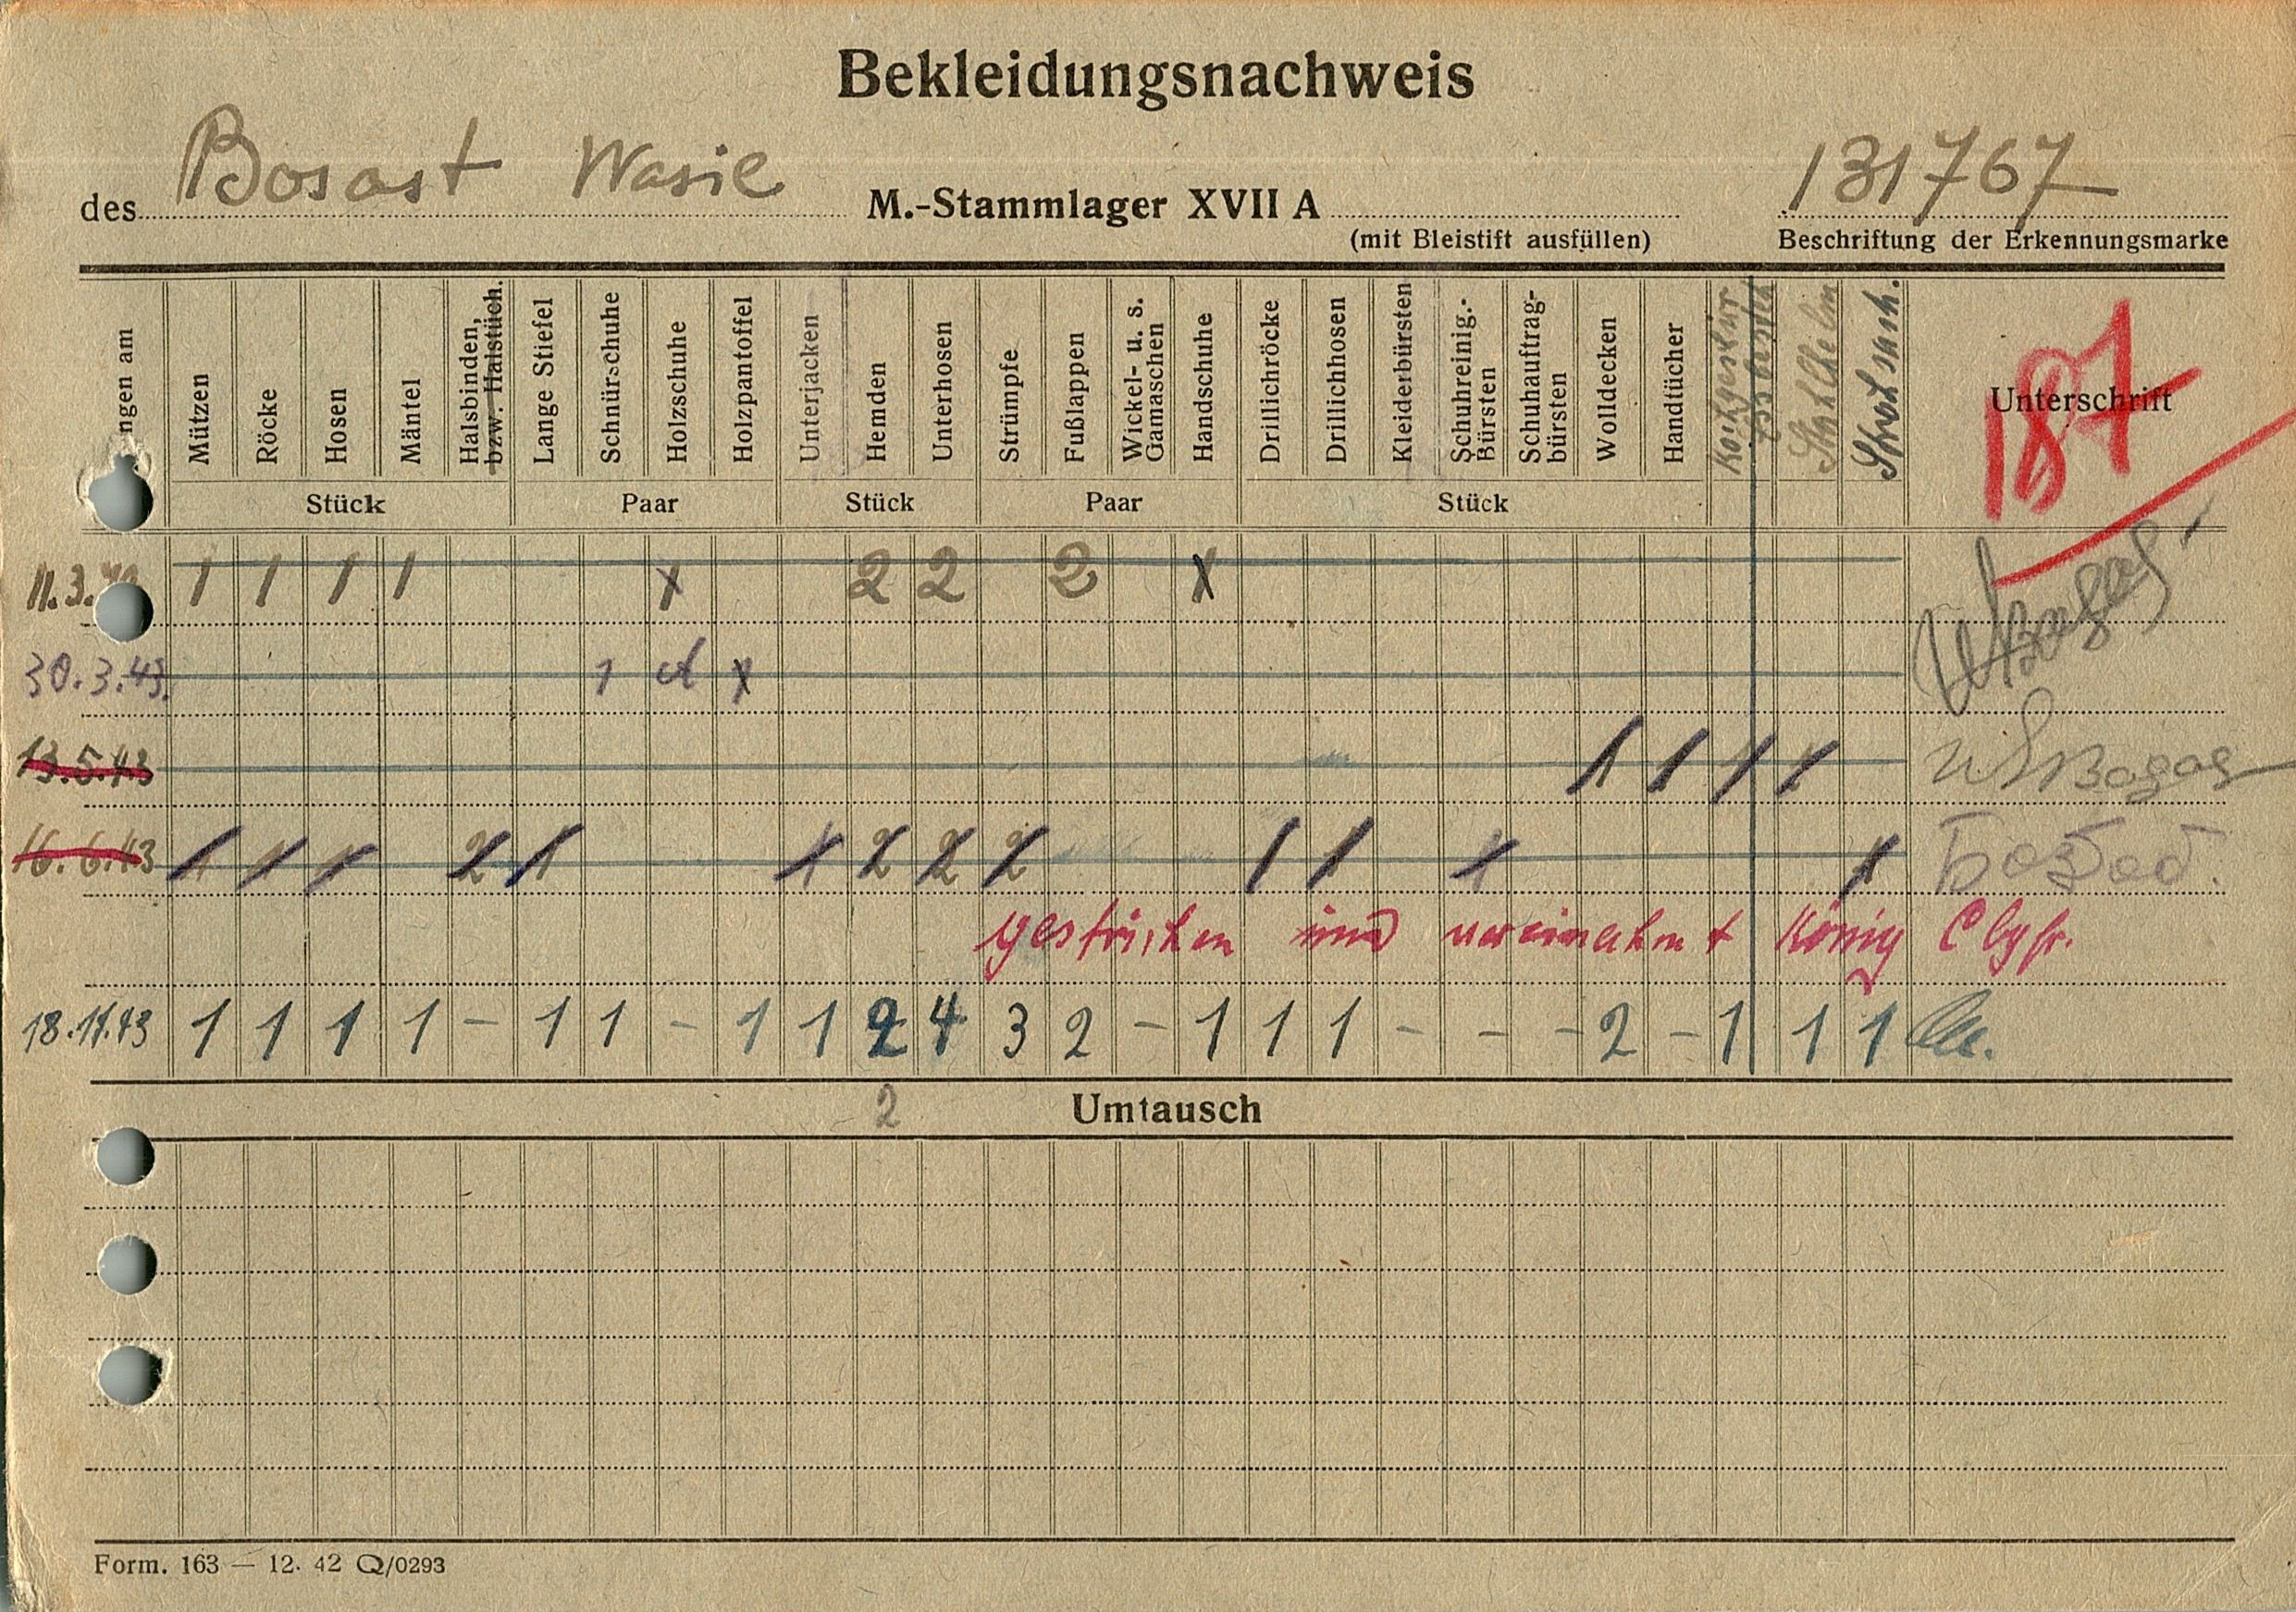 Bekleidungsnachweis
des Bosast Wasil M.-Stammlager XVII A 131767
(mit Bleistift ausfüllen) Beschriftung der Erkennungsmarke
ngen am Mützen Röcke Hosen Mäntel Halsbinden, bzw. Halstüch. Lange Stiefel Schnürschuhe Holzschuhe Holzpantoffel Unterjacken Hemden Unterhosen Strümpfe Fußlappen Wickel- u. s. Gamaschen Handschuhe Drillichröcke Drillichhosen Kleiderbürsten Schuhreinig.-Bürsten Schuhauftrag-bürsten Wolldecken Handtücher Kochgeschirr Essbesteck Stahlhelm Strohsack. Unterschrift
187
Stück Paar Stück Paar Stück
11.3. 1 1 1 1 x 2 2 2 x
30.3.43. 1 x
13.5.43 1 1 1 1
16.6.43 1 1 1 2 1 1 2 2 2 1 1 1 1
gestrichen und vereinnahmt König
18.11.43 1 1 1 1 - 1 1 - 1 1 2 4 3 2 - 1 1 1 - - - 2 - 1 1 1
2 Umtausch
Form. 163 — 12. 42 Q/0293